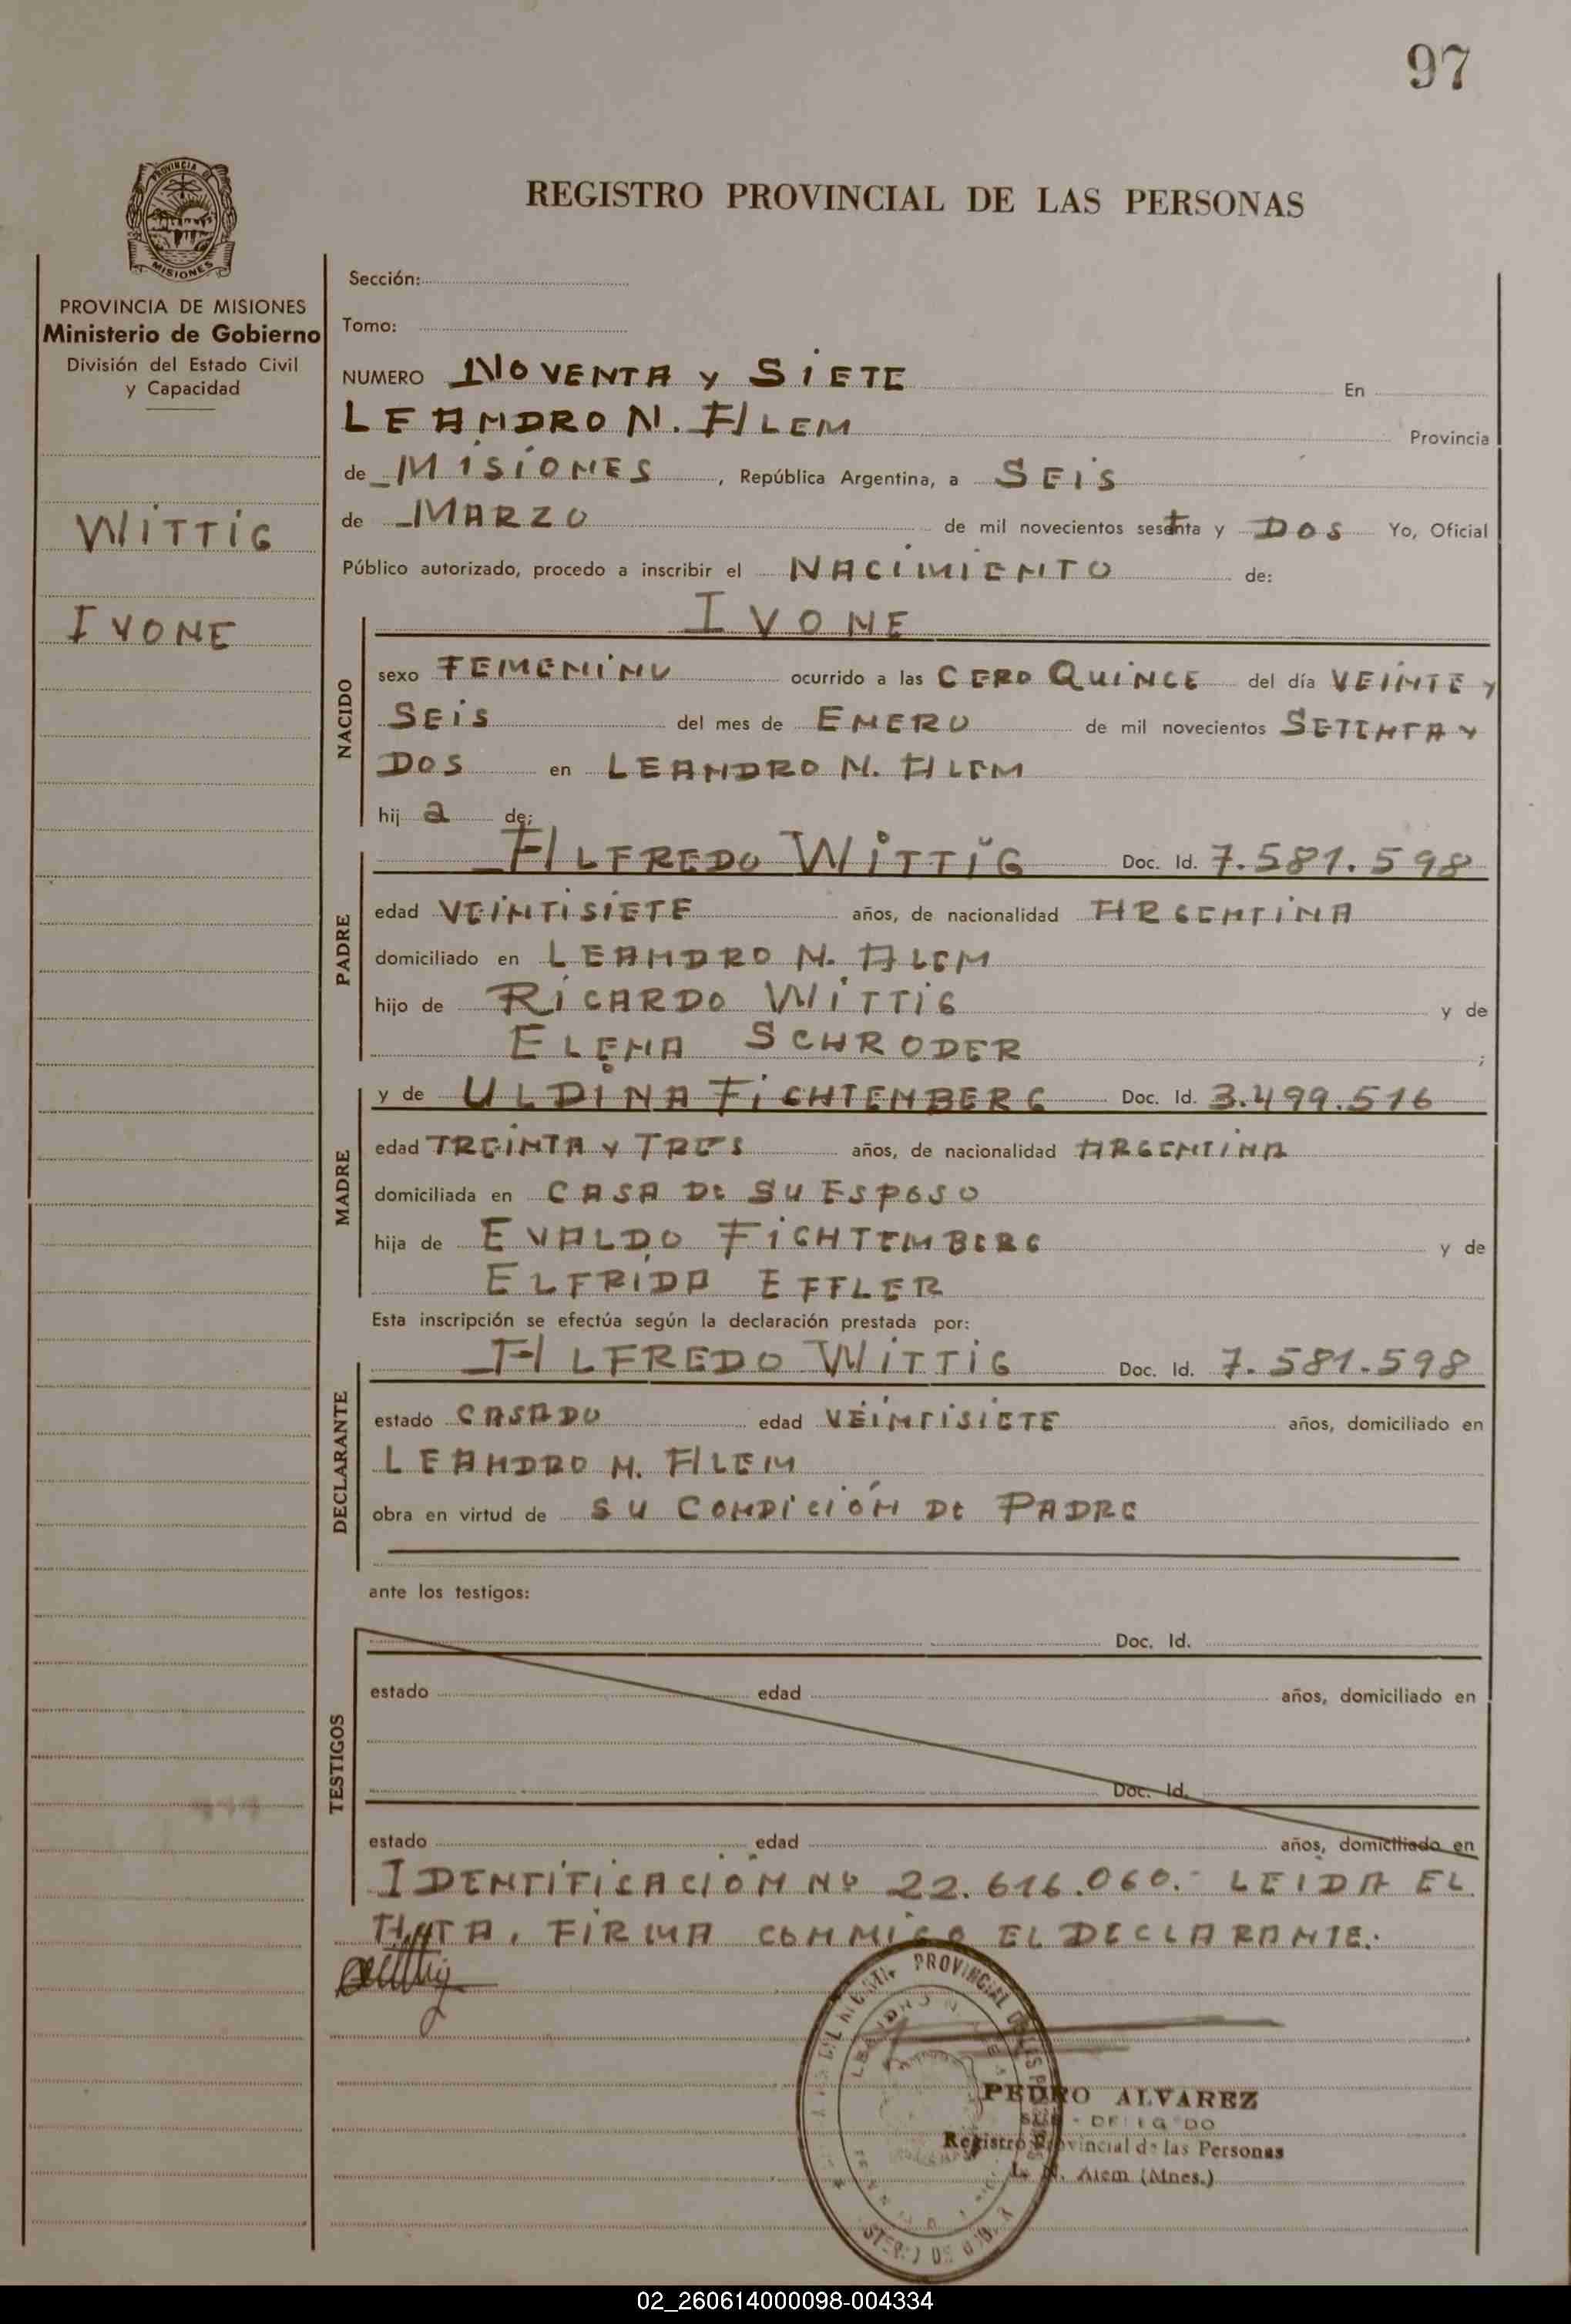 97
PROVINCIA DE
MISIONES
REGISTRO PROVINCIAL DE LAS PERSONAS
PROVINCIA DE MISIONES
Ministerio de Gobierno
División del Estado Civil
y Capacidad
WITTIG
IVONE
Sección:
Tomo:
NUMERO NOVENTA y SIETE En
LEANDRO N. ALEM Provincia
de MISIONES, República Argentina, a SEIS
de MARZO de mil novecientos setenta y DOS Yo, Oficial
Público autorizado, procedo a inscribir el NACIMIENTO de:
NACIDO
IVONE
sexo FEMENINO ocurrido a las CERO QUINCE del día VEINTE y
SEIS del mes de ENERO de mil novecientos SETENTA y
DOS en LEANDRO N. ALEM
hij a de:
PADRE
ALFREDO WITTIG Doc. Id. 7.581.598
edad VEINTISIETE años, de nacionalidad ARGENTINA
domiciliado en LEANDRO N. ALEM
hijo de RICARDO WITTIG y de
ELENA SCHRODER ;
MADRE
y de ULDINA FICHTENBERG Doc. Id. 3.499.516
edad TREINTA y TRES años, de nacionalidad ARGENTINA
domiciliada en CASA DE SU ESPOSO
hija de EVALDO FICHTEMBERG y de
ELFRIDA EFFLER
Esta inscripción se efectúa según la declaración prestada por:
DECLARANTE
ALFREDO WITTIG Doc. Id. 7.581.598
estado CASADO edad VEINTISIETE años, domiciliado en
LEANDRO N. ALEM
obra en virtud de SU CONDICIÓN DE PADRE
ante los testigos:
TESTIGOS
Doc. Id.
estado edad años, domiciliado en
Doc. Id.
estado edad años, domiciliado en
IDENTIFICACIÓN Nº 22.616.060.- LEIDA EL
ACTA, FIRMA CONMIGO EL DECLARANTE.
PROVINCIAL
PEDRO ALVAREZ
SUB-DELEGADO
Registro Provincial de las Personas
L. N. Alem (Mnes.)
02_260614000098-004334